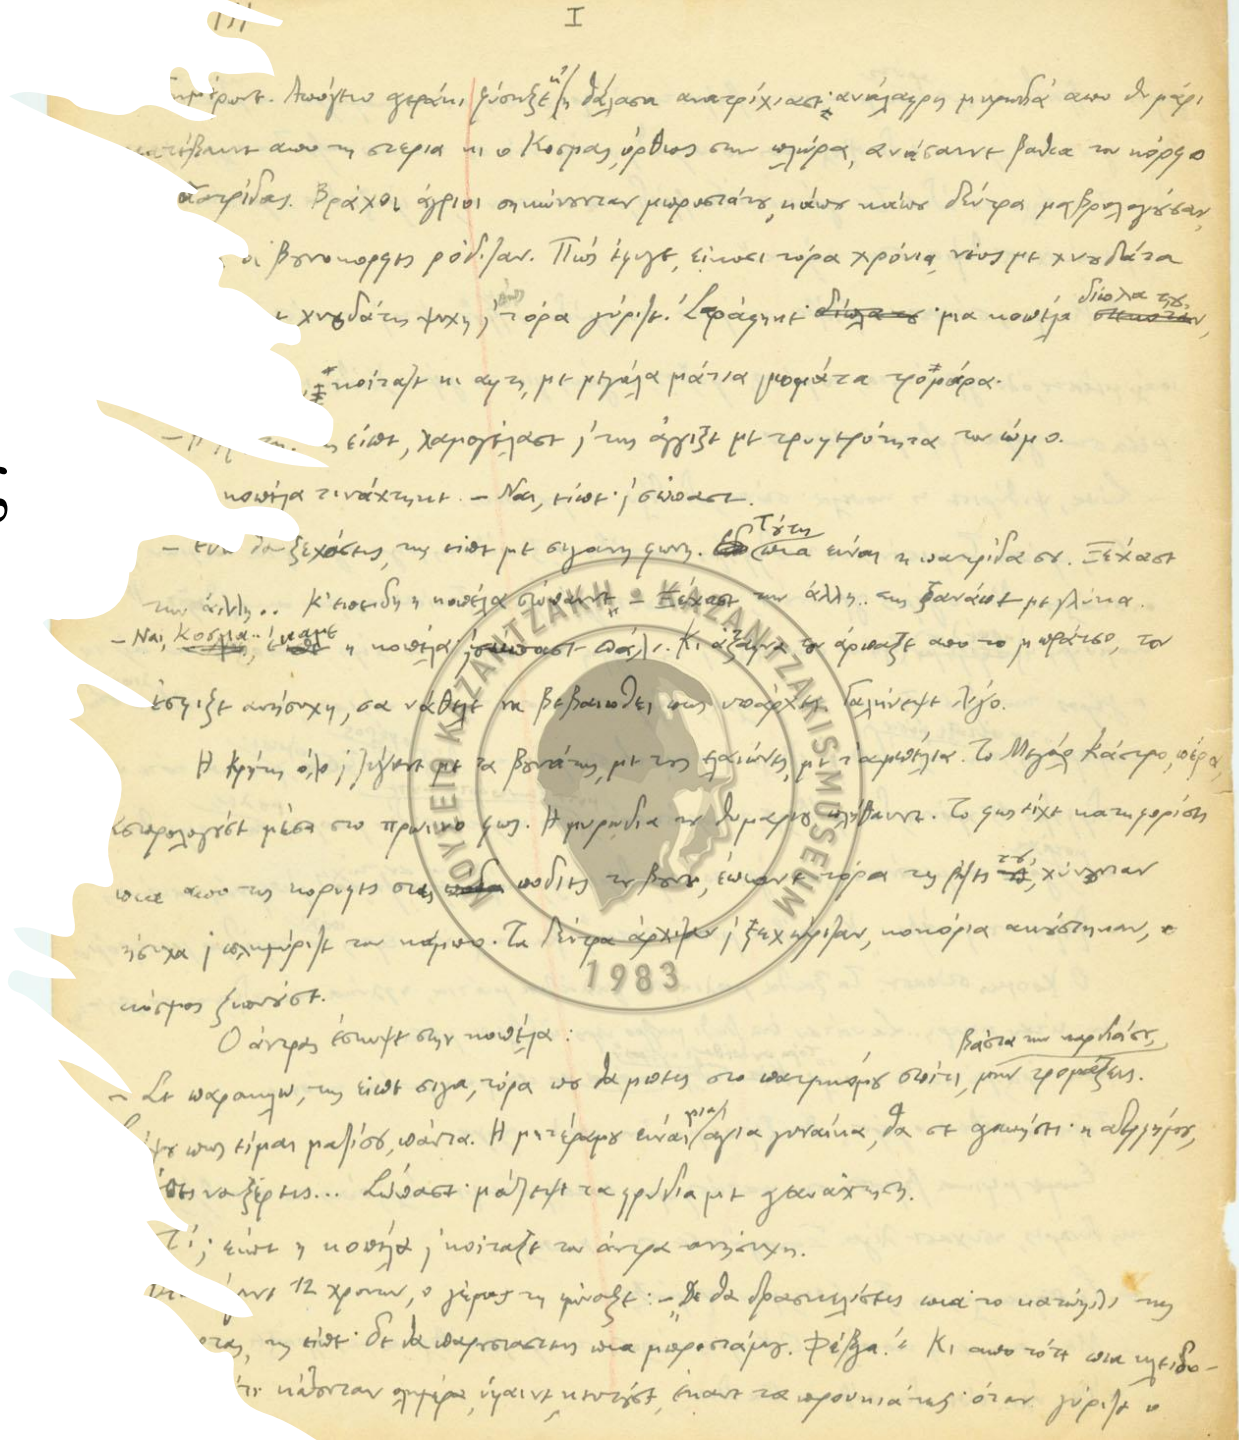 I
Απόγειο αεράκι φύσηξε κ' η θάλασα ανατρίχιασε· ανάλαφρη μυρωδιά από θυμάρι
κατέβαινε απο τη στεριά κι ο Κοσμάς, όρθιος στην πλώρα, ανάσαινε βαθιά τον κόρφο
πατρίδας. Βράχοι άγριοι σηκώνουνταν μπροστά του, κάπου κάπου δέντρα μαβρολογούσαν,
οι βουνοκορφές ρόδιζαν. Πώς έφυγε, είκοσι τόρα χρόνια, νέος με χνουδάτα
χνουδάτη ψυχή, πώς τόρα γύριζε. Στράφηκε· μια κοπέλα δίπλα του,
κοίταζε κι αφτή, με μεγάλα μάτια γιομάτα τρομάρα.
είπε, χαμογέλασε ι' της άγγιξε με τρυφερότητα τον ώμο.
κοπέλα τινάχτηκε. – Ναι, είπε· ι' σώπασε.
– θα ξεχάσεις, της είπε με σιγανή φωνή. Τούτη πια είναι η πατρίδα σου. Ξέχασε
την άλλη.. Κ' επειδή η κοπέλα σώπαινε – Ξέχασε την άλλη.. της ξανάπε με γλύκα.
– Ναι, Κοσμά.. έκαμε η κοπέλα· ι' σώπασε πάλι. Κι άξαφνα τον άρπαξε απο το μπράτσο, τον
έσφιξε ανήσυχη, σα νάθελε να βεβαιωθεί πως υπάρχει. Γαλήνεψε λίγο.
Η Κρήτη όλο ι' ζύγωνε με τα βουνά της, με τους ελαιώνες, με τ' αμπέλια. Το Μεγάλο Κάστρο, πέρα,
ασπρολογούσε μέσα στο πρωινό φως. Η μυρωδιά του θυμαριού πλήθαινε. Το φως είχε κατηφορίσει
πια απο τις κορφές στις ποδιές του βουνού, έπιανε τόρα τις ρίζες του, χύνουνταν
ήσυχα ι' πλημύριζε τον κάμπο. Τα δέντρα άρχιζαν ι' ξεχώριζαν, κοκόρια ακούστηκαν, ο
κόσμος ξυπνούσε.
Ο άντρας έσκυψε στην κοπέλα:
– Σε παρακαλώ, της είπε σιγά, τόρα που θα μπεις στο πατρικό μου σπίτι, βάστα την καρδιά σου, μην τρομάξεις.
πως είμαι μαζί σου, πάντα. Η μητέρα μου είναι μια άγια γυναίκα, θα σε αγαπήσει· η αδερφή μου,
να ξέρεις... Σώπασε· μάζεψε τα φρύδια με αγανάχτηση.
Τί; είπε η κοπέλα ι' κοίταξε τον άντρα ανήσυχη.
12 χρονών, ο γέρος τη φώναξε: – Δε θα δρασκελίσεις πια το κατώφλι της
της είπε· δε θα παρουσιαστείς πια μπροστά μου. Φέβγα! Κι απο τότε πια κλειδο-
κάθουνταν ολημέρα, ύφαινε, κεντούσε, έκανε τα προυκιά της· όταν γύριζε ο
ΜΟΥΣΕΙΟ ΚΑΖΑΝΤΖΑΚΗ · KAZANTZAKIS MUSEUM
1983